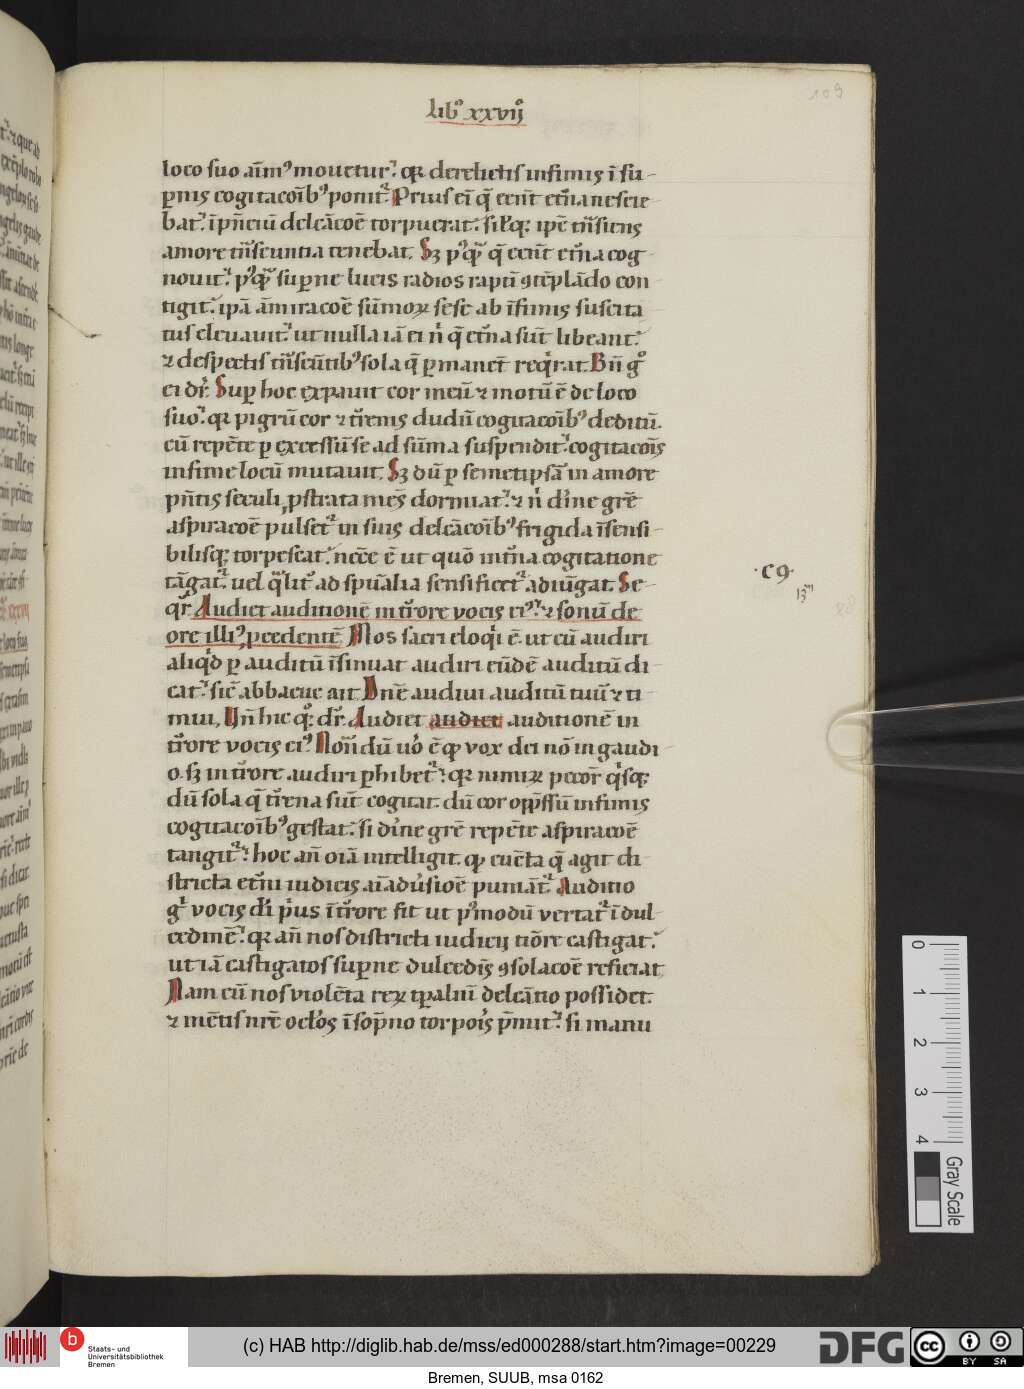 109
lib⁹ xxvij
loco suo aīm⁹ mouetur. qr derelictis infimis ī su-
pnis cogitacōib⁹ ponit᷑. Prius eī q̄ eent et̄na nescie
bat. ī pn̄ciū delcācōe torpuerat. sil'q; ipē tn̄siens
amore tn̄seuntia tenebat. Sz p⁹qᷓ q̄ eent et̄na cog
nouit. p⁹qᷓ superne lucis radios raptī ꝯtēplādo con
tigit. ipā āmiracōe sūmoꝝ sese ab īfimis suscita
tus eleuauit. ut nulla iā ei n̍ q̄ et̄na sūt libeant.
⁊ despectis tn̄seūtib⁹ sola q̄ pmanet reqͥrat. Bn̄ gͦ
ei dr̄. Sup hoc expauit cor meū ⁊ motū ē de loco
suo. qr pigrū cor ⁊ tr̄enis dudū cogitacōib⁹ deditū.
cū repēte p excessū se ad sūma suspendit. cogitacōis
infime locū mutauit. Sz dū p semetipsā in amore
pn̄tis seculi pstrata mēs dormiat. ⁊ n̍ diͥne grē
aspiracōe pulset᷑ in suis delcācōib⁹ frigida īsensi-
bilisq; torpescat. necēe ē ut quō int̄na cogitatione
tāgat᷑. uel qͣlit᷑ ad spūalia sensificet᷑ adiūgat. Se-
·C9·
qr̄. Audiet auditionē in tr̄ore vocis ei⁹. ⁊ sonū de
ore illi⁹ pcedentē. Mos sacri eloqͥi ē. ut cū audiri
aliqͥd p auditū īsinuat audiri eūdē auditū di-
cat. sic̄ abbacuc ait. Dn̄e audiui auditū tuū ⁊ ti
mui. Un̄ hic qͦ; dr̄. Audiet audiet auditionē in
tr̄ore vocis ei⁹. Non̄dū uͦ ē ꝙ vox dei nō in gaudi-
o. sz in tr̄ore audiri phibet᷑. qr nimiꝝ peccōr̄ qͥsq;
dū sola q̄ tr̄rena sūt cogitat. dū cor opp̄ssū infimis
cogitacōib⁹ gestat. si diͥne grē repēte aspiracōe
tangit᷑. hoc an̄ oīa intelligit. ꝙ cūcta q̄ agit di-
stricta et̄ni iudicis aīaduͥsiōe puniāt᷑. Auditio
gͦ vocis di̍ pͥus ī tr̄ore fit ut p⁹modū vertat᷑ ī dul-
cedinē. qr an̄ nos districti iudicij tiōre castigat.
ut iā castigatos superne dulcedīs ꝯsolacōe reficiat
Nam cū nos violēta rex tp̄aliū delcātio possidet.
⁊ mētis nr̄e oclōs ī sop̄no torpōis p̄mit. si manu
0
1
2
3
4
Gray Scale
b
Staats- und
Universitätsbibliothek
Bremen
(c) HAB http://diglib.hab.de/mss/ed000288/start.htm?image=00229
DFG
cc
BY SA
Bremen, SUUB, msa 0162